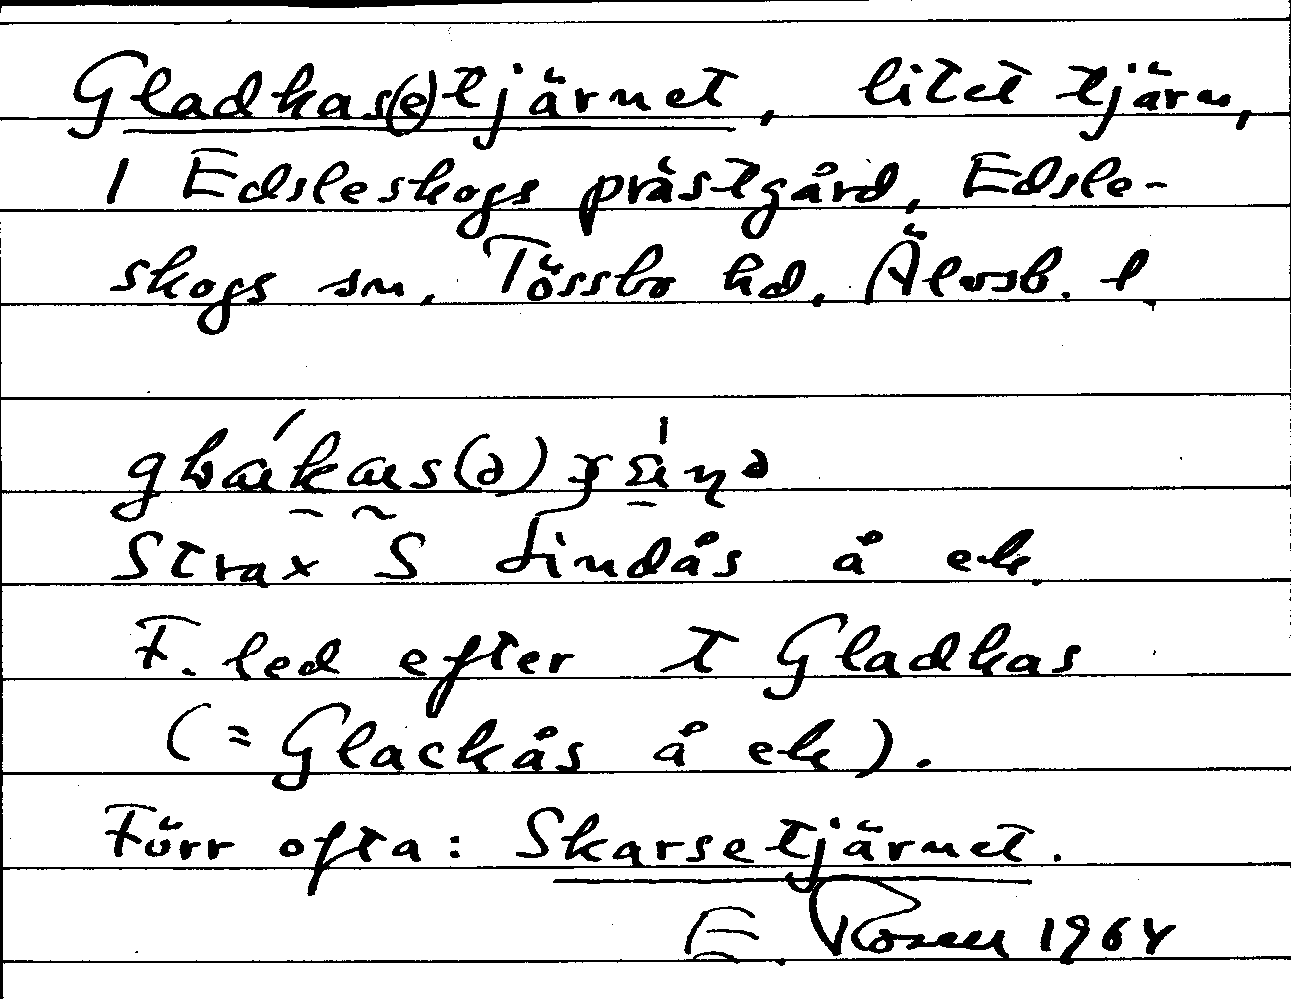 Gladkas(e)tjärnet, litet tjärn,
i Edsleskogs prästgård, Edsle-
skogs sn, Tössbo hd, Älvsb. l.
Strax S Lindås å ek.
F. led efter t Gladkas
(= Glackås å ek).
Förr ofta: Skarsetjärnet.
E. Rosell 1964